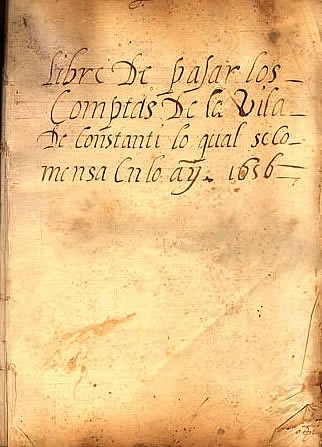 Libre De pasar los
Comptes De la Vila
De Constanti lo qual se co-
mensa En lo añy 1636